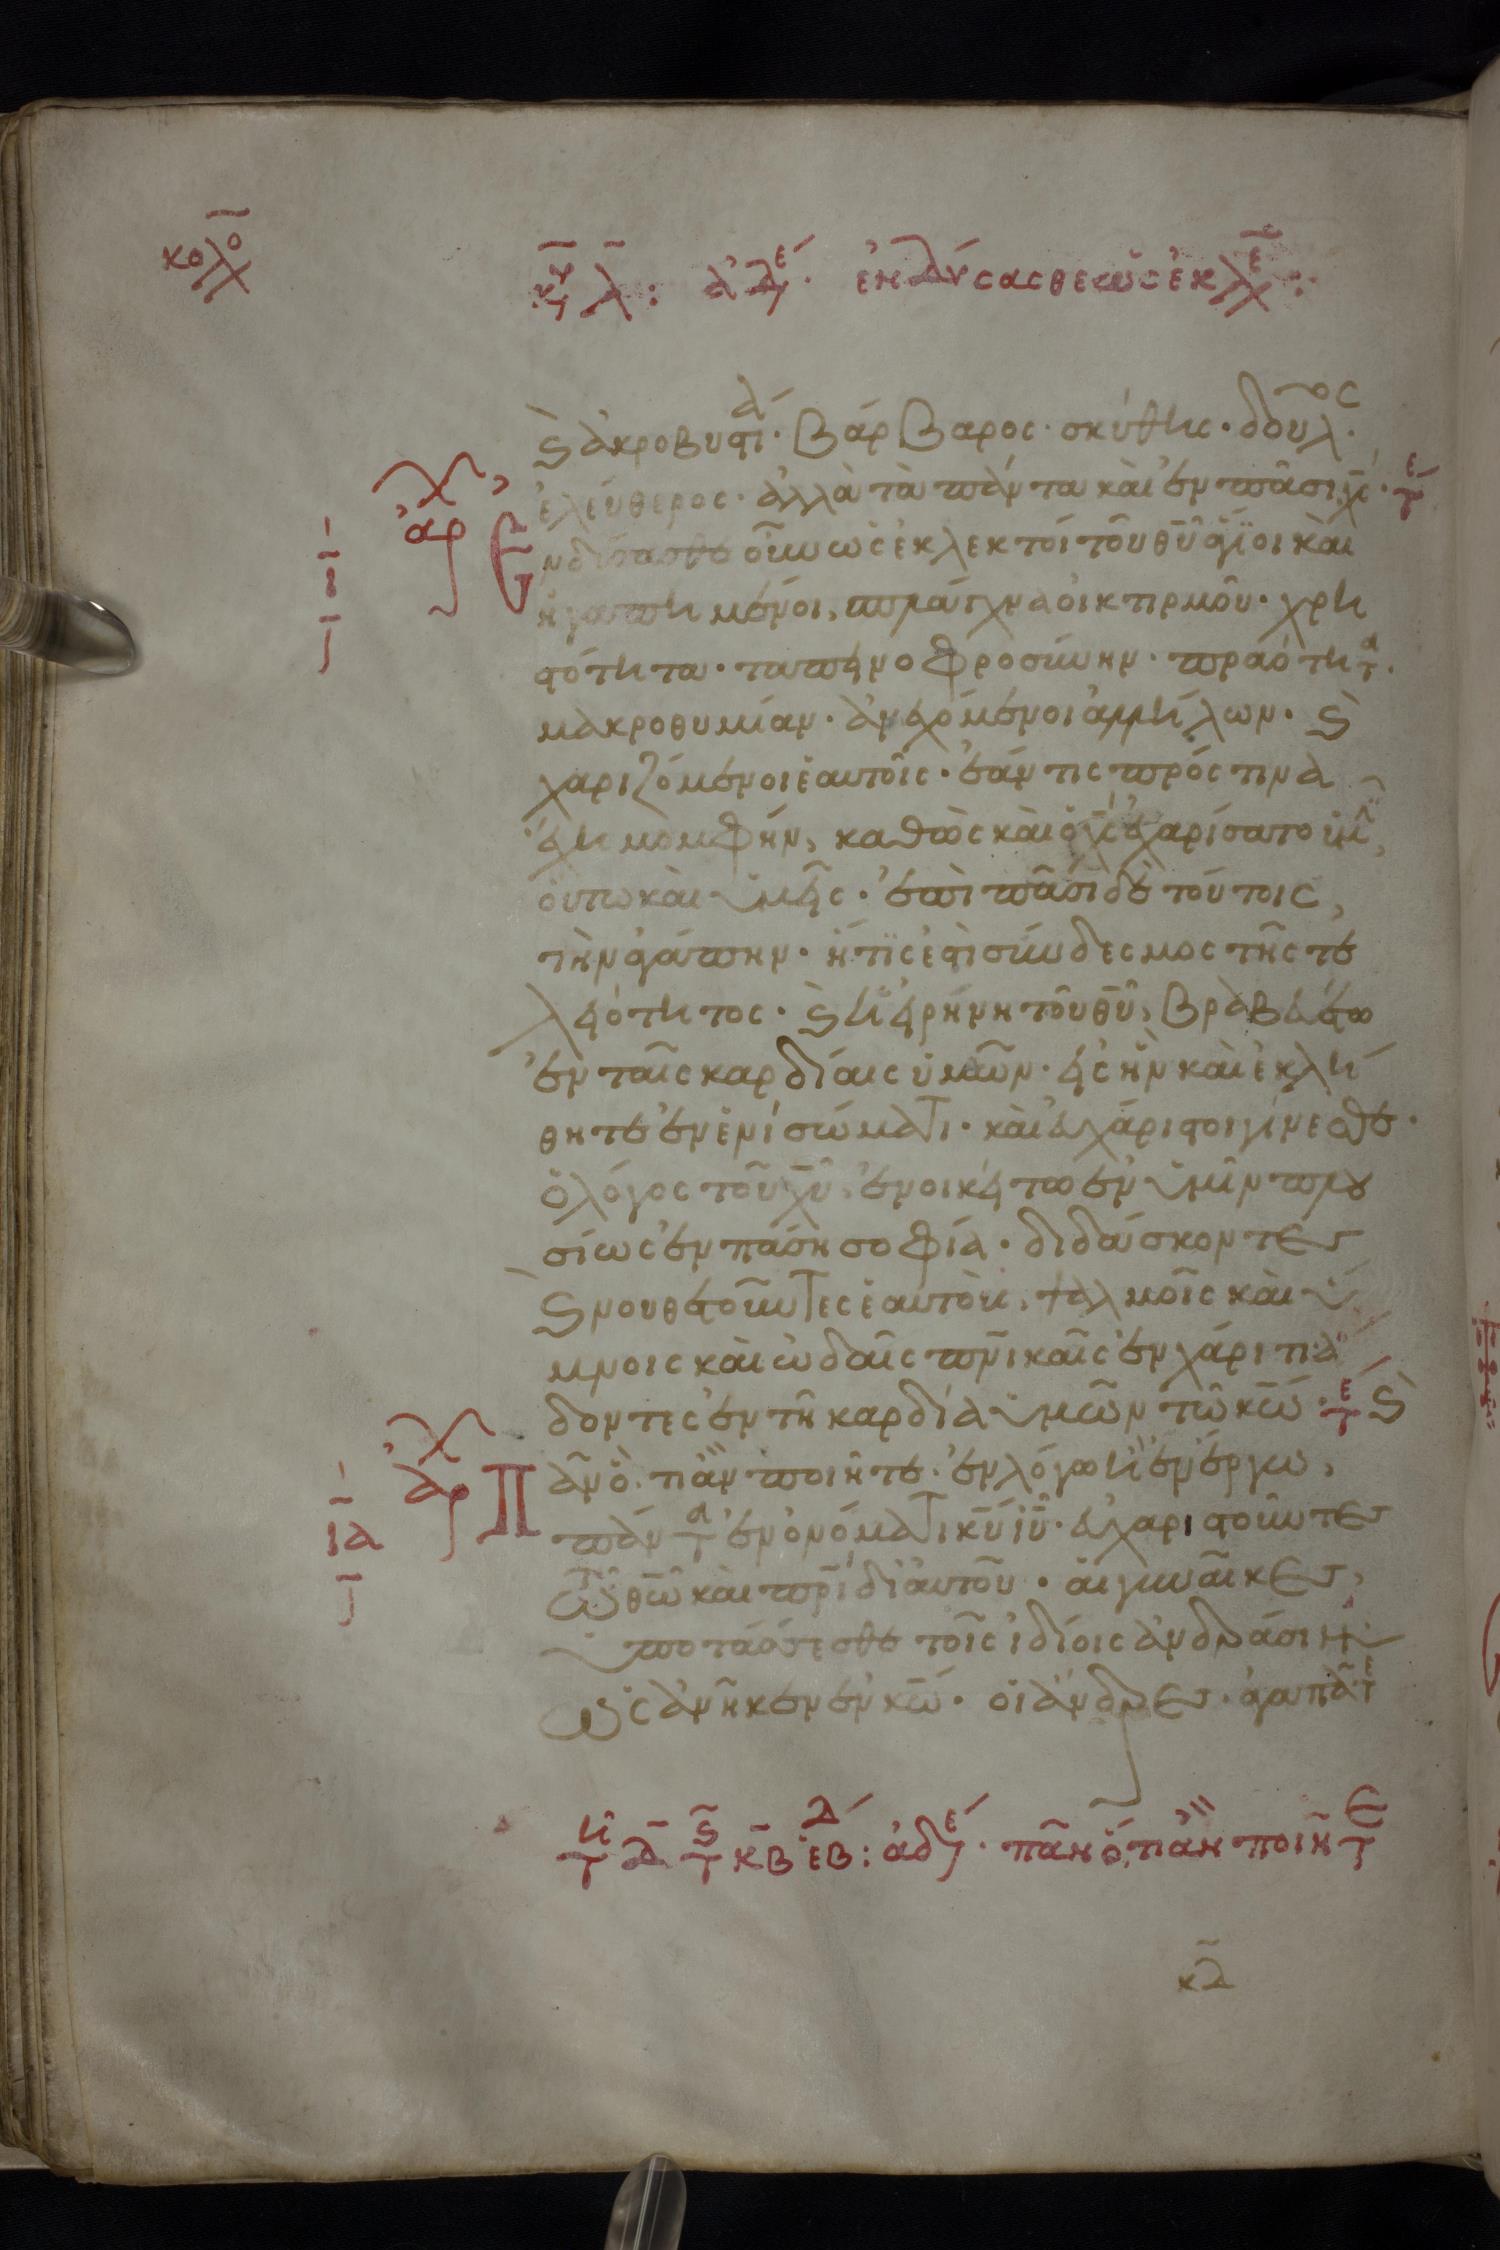 κολο
κυ λ: ἀδε. ἐνδύσασθε ὡς ἐκλε:
ϗ ἀκροβυστία· βάρβαρος· σκύθης· δοῦλος·
ἐλεύθερος· ἀλλὰ τὰ πάντα καὶ ἐν πᾶσι χς· τε
ἀρχ
Ενδύσασθε οὖν ὡς ἐκλεκτοί τοῦ θυ ἅγιοι καὶ
ι
ἠγαπημένοι, σπλάγχνα οἰκτιρμοῦ· χρη
στότητα· ταπεινοφροσύνην· πραότητα·
μακροθυμίαν· ἀνεχόμενοι ἀλλήλων· ϗ
χαριζόμενοι ἑαυτοῖς· ἐάν τις πρός τινα
ἔχη μομφήν, καθὼς καὶ ὁ χς ἐχαρίσατο ὑμῖ,
οὕτω καὶ ὑμεῖς· ἐπὶ πᾶσι δὲ τούτοις,
τὴν ἀγάπην· ἥτις ἐστὶ σύνδεσμος τῆς τε
λειότητος· ϗ ἡ εἰρήνη τοῦ θυ, βραβευέτω
ἐν ταῖς καρδίαις ὑμῶν· εἰς ἣν καὶ ἐκλή
θητε ἐν ἑνὶ σώματι· καὶ εὐχάριστοι γίνεσθε·
ὁ λόγος τοῦ χυ, ἐνοικείτω ἐν ὑμῖν πλου
σίως ἐν πάση σοφία· διδάσκοντες
ϗ νουθετοῦντες ἑαυτοὺς, ψαλμοῖς καὶ ὕ
μνοις καὶ ὠδαῖς πνικαῖς ἐν χάριτι ἄ
δοντες ἐν τῆ καρδία ὑμῶν τῶ κω· τε ϗ
ἀρχ
ια
Πᾶν ὅ,τι ἂν ποιῆτε· ἐν λόγω ἢ ἐν ἔργω,
πάντα ἐν ὀνόματι κυ ιυ· εὐχαριστοῦντες
τῶ θω καὶ πρι δι αὐτοῦ· αἱ γυναῖκες,
ὑποτάσσεσθε τοῖς ἰδίοις ἀνδράσιν
ὡς ἀνῆκεν ἐν κω· οἱ ἄνδρες· ἀγαπᾶτε
τη δ τς κβ εβδ: ἀδε. πᾶν ὅ,τι ἂν ποιῆτε
κδ